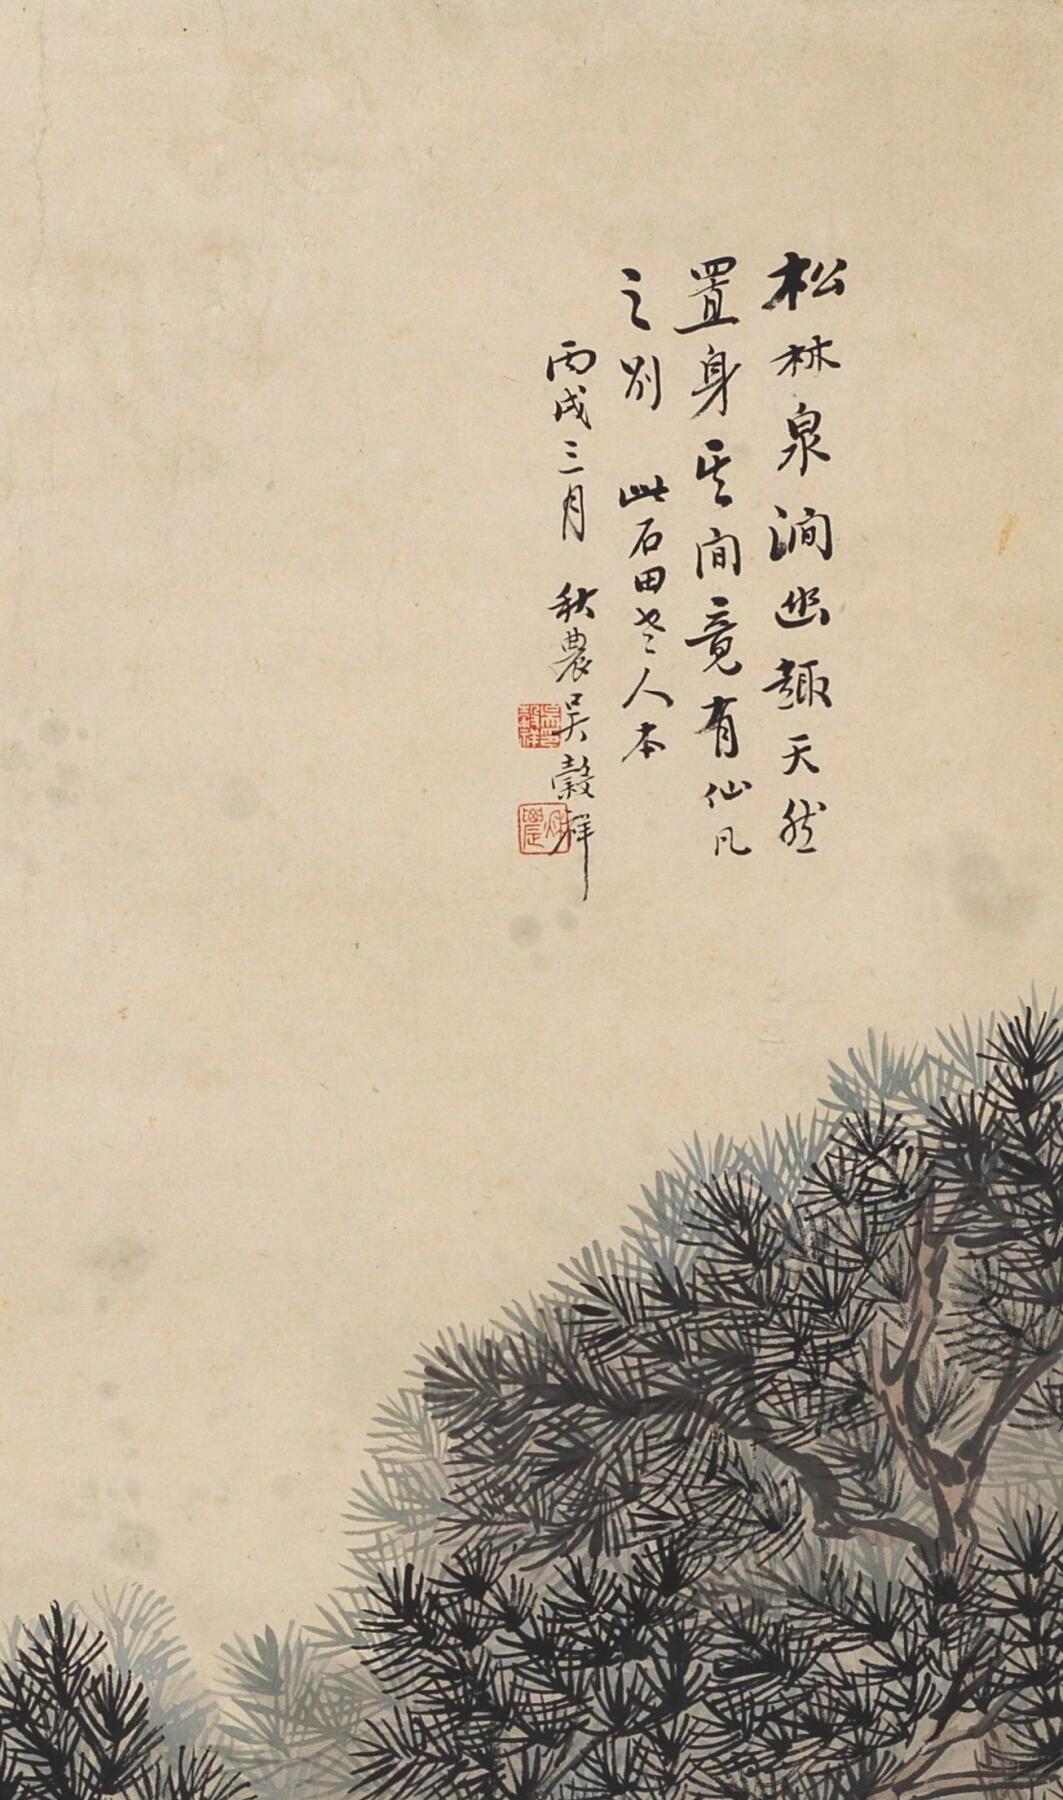 松林泉澗幽趣天然
置身其間竟有仙凡
之別 此石田老人本
丙戌三月 秋農吳穀祥
吳穀祥印
秋農